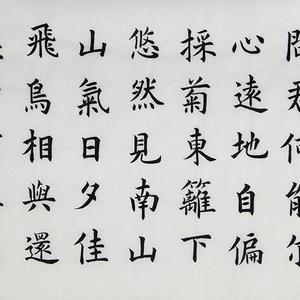 問君何能爾
心遠地自偏
採菊東籬下
悠然見南山
山氣日夕佳
飛鳥相與還